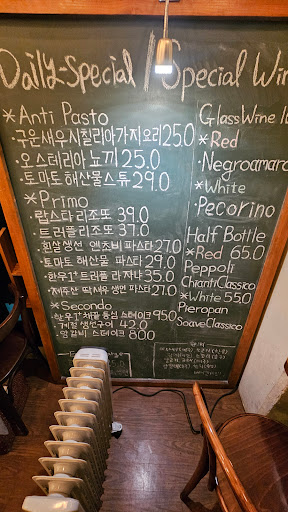 Daily-Special / Special Win
*Anti Pasto
·구운새우시칠리아가지요리 25.0
·오스테리아 뇨끼 25.0
·토마토 해산물 스튜 29.0
*Primo
·랍스타 리조또 39.0
·트러플 리조또 37.0
·흰살생선 앤초비 파스타 27.0
·토마토 해산물 파스타 29.0
·한우1++ 트러플 라자냐 35.0
·제주산 딱새우 생면 파스타 27.0
*Secondo
·한우1++ 채끝 등심 스테이크 95.0
·계절 생선구이 42.0
·양갈비 스테이크 80.0
GlassWine
*Red
·Negroamaro
*White
·Pecorino
Half Bottle
*Red 65.0
Peppoli
Chianti Classico
*White 55.0
Pieropan
Soave Classico